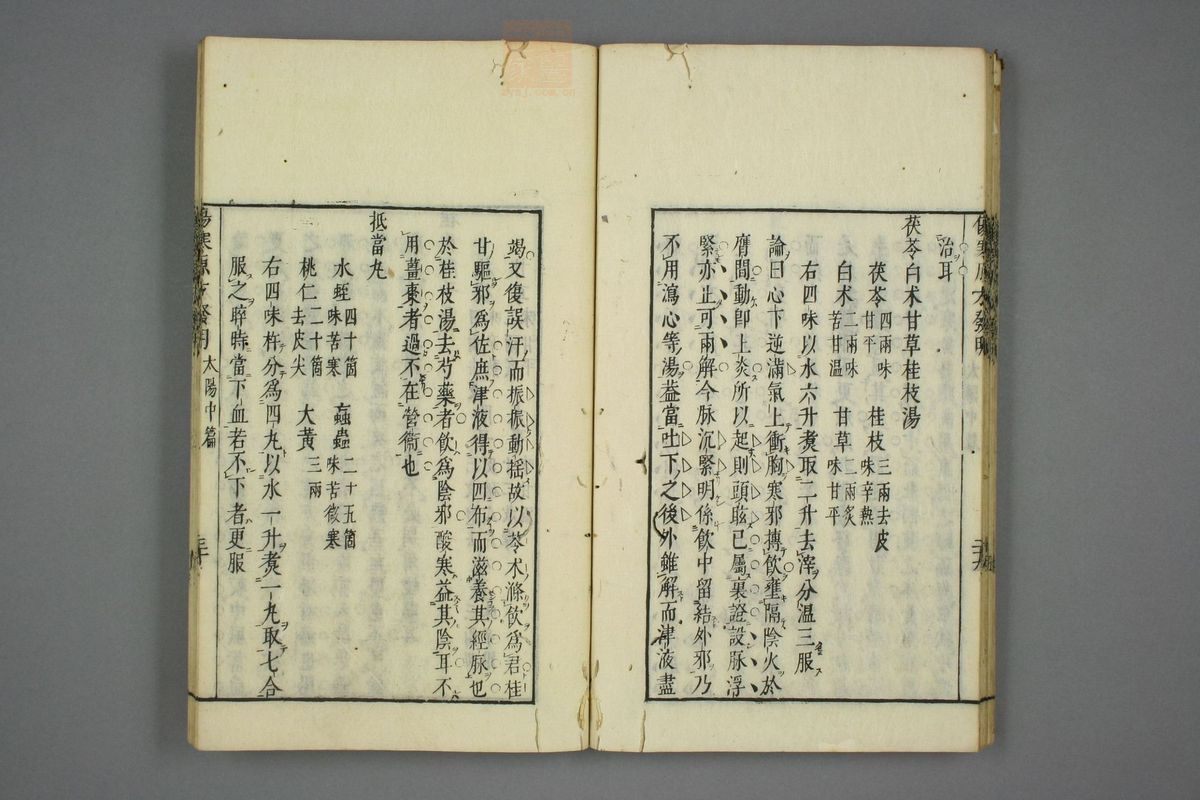 治耳
茯苓白朮甘草桂枝湯
茯苓 四兩味甘平 桂枝 三兩去皮味辛熱
白朮 二兩味苦甘温 甘草 二兩炙味甘平
右四味以水六升煑取二升去滓分温三服
論曰心下逆滿氣上衝胸寒邪搏飲壅隔陰火於
膺間動卽上炎所以起則頭眩已屬裏證設脉浮
緊亦止可兩解今脉沉緊明係飲中留結外邪乃
不用瀉心等湯葢當吐下之後外雖解而津液盡
傷寒 太陽中篇
竭又復誤汗而振振動揺故以苓朮滌飲爲君桂
甘驅邪爲佐庶津液得以四布而滋養其經脉也
於桂枝湯去芍藥者飲爲陰邪酸寒益其陰耳不
用薑棗者過不在營衞也
抵當丸
水蛭 四十箇味苦寒 蝱蟲 二十五箇味苦微寒
桃仁 二十箇去皮尖 大黃 三兩
右四味杵分爲四丸以水一升煑一丸取七合
服之晬時當下血若不下者更服
太陽中篇
zysj.com.cn